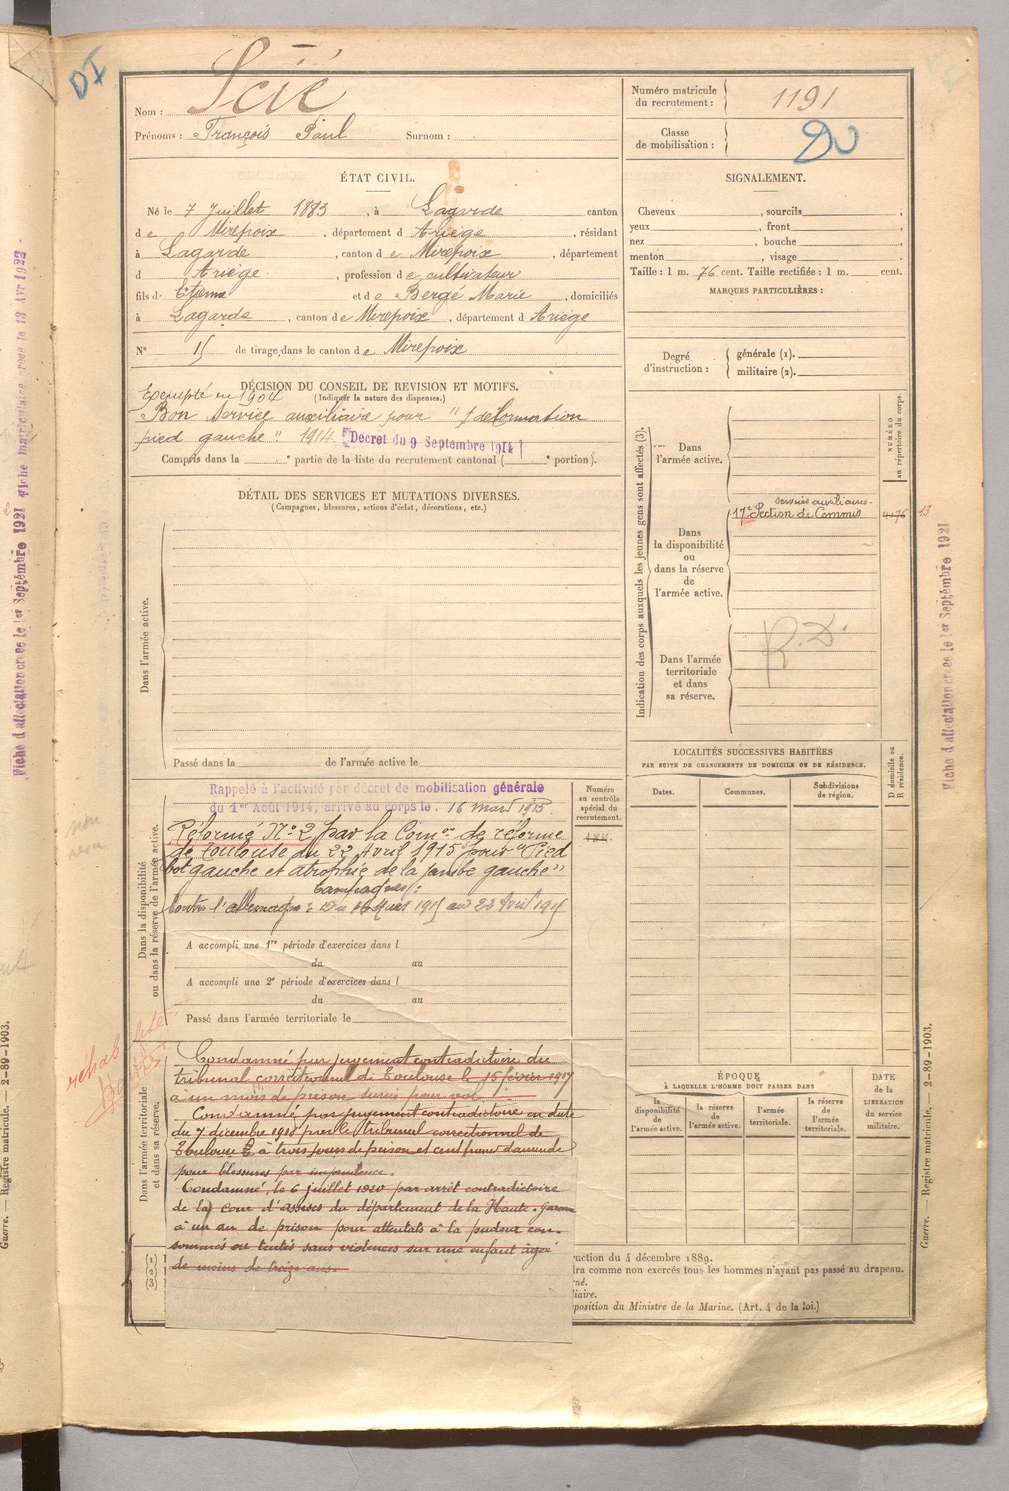 DI
Nom : Scié
Prénoms : François Paul Surnom :
Numéro matricule du recrutement : 1191
Classe de mobilisation :
ÉTAT CIVIL.
Né le 7 Juillet 1883, à Lagarde canton
de Mirepoix, département d Ariège, résidant
à Lagarde, canton de Mirepoix, département
d Ariège, profession de cultivateur
fils d' Etienne et de Bergé Marie, domiciliés
à Lagarde, canton de Mirepoix, département d Ariège
N° 15 de tirage dans le canton de Mirepoix
SIGNALEMENT.
Cheveux, sourcils,
yeux, front,
nez, bouche,
menton, visage
Taille : 1 m. 76 cent. Taille rectifiée : 1 m. cent.
MARQUES PARTICULIÈRES :
Degré d'instruction : générale (1).
militaire (2).
DÉCISION DU CONSEIL DE REVISION ET MOTIFS.
(Indiquer la nature des dispenses.)
Exempté en 1904
Bon Service auxiliaire pour " déformation
pied gauche " 1914 [Décret du 9 Septembre 1914]
Compris dans la e partie de la liste du recrutement cantonal ( e portion).
DÉTAIL DES SERVICES ET MUTATIONS DIVERSES.
(Campagnes, blessures, actions d'éclat, décorations, etc.)
Dans l'armée active.
Passé dans la de l'armée active le
Indication des corps auxquels les jeunes gens sont affectés (3).
NUMÉRO au répertoire du corps.
Dans l'armée active.
services auxiliaires
17e Section de Commis 4176 13
Dans la disponibilité ou dans la réserve de l'armée active.
R. D.
Dans l'armée territoriale et dans sa réserve.
LOCALITÉS SUCCESSIVES HABITÉES
PAR SUITE DE CHANGEMENTS DE DOMICILE OU DE RÉSIDENCE.
Dates. Communes. Subdivisions de région. D domicile ou R résidence.
Dans la disponibilité ou dans la réserve de l'armée active.
Numéro au contrôle spécial du recrutement.
Rappelé à l'activité par décret de mobilisation générale
du 1er Août 1914, arrivé au corps le 16 mars 1915.
Réformé N° 2 par la Comon de réforme
de Toulouse du 22 Avril 1915 pour "Pied
bot gauche et atrophie de la jambe gauche"
Campagnes :
Contre l'Allemagne : du 16 Mars 1915 au 22 Avril 1915
A accompli une 1re période d'exercices dans l
du au
A accompli une 2e période d'exercices dans l
du au
Passé dans l'armée territoriale le
Dans l'armée territoriale et dans sa réserve.
Condamné par jugement contradictoire du
tribunal correctionnel de Toulouse le 15 février 1917
à un mois de prison sursis pour vol
Condamné par jugement contradictoire en date
du 7 décembre 1918 par le tribunal correctionnel de
Toulouse à trois jours de prison et cent francs d'amende
pour blessures par imprudence.
Condamné, le 6 juillet 1920 par arrêt contradictoire
de la Cour d'assises du département de la Haute-Garonne
à un an de prison pour attentats à la pudeur con-
sommés ou tentés sans violences sur une enfant âgée
de moins de treize ans.
ÉPOQUE
À LAQUELLE L'HOMME DOIT PASSER DANS
la disponibilité de l'armée active. la réserve de l'armée active. l'armée territoriale. la réserve de l'armée territoriale.
DATE de la LIBÉRATION du service militaire.
(1)
(2)
(3)
uction du 4 décembre 1889.
dra comme non exercés tous les hommes n'ayant pas passé au drapeau.
né.
liaire.
position du Ministre de la Marine. (Art. 4 de la loi.)
Guerre. — Registre matricule. — 2-89-1903.
Guerre. — Registre matricule. — 2-89-1903.
Fiche d'affectation créée le 1er Septembre 1921
Fiche matriculaire créée le 13 Avr 1923
Fiche d'affectation créée le 1er Septembre 1921